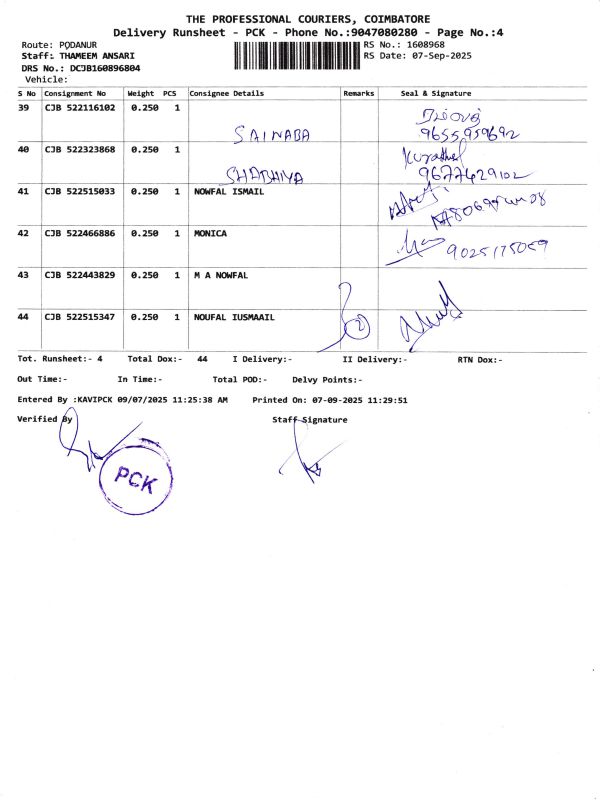 THE PROFESSIONAL COURIERS, COIMBATORE
Delivery Runsheet - PCK - Phone No.:9047080280 - Page No.:4
Route: PODANUR RS No.: 1608968
Staff: THAMEEM ANSARI RS Date: 07-Sep-2025
DRS No.: DCJB160896804
Vehicle:
S No Consignment No Weight PCS Consignee Details Remarks Seal & Signature
39 CJB 522116102 0.250 1
SAINABA 9655959692
40 CJB 522323868 0.250 1
SHABHIYA 9677429102
41 CJB 522515033 0.250 1 NOWFAL ISMAIL
42 CJB 522466886 0.250 1 MONICA
9025175059
43 CJB 522443829 0.250 1 M A NOWFAL
44 CJB 522515347 0.250 1 NOUFAL IUSMAAIL 2
Tot. Runsheet:- 4 Total Dox:- 44 I Delivery:- II Delivery:- RTN Dox:-
Out Time:- In Time:- Total POD:- Delvy Points:-
Entered By :KAVIPCK 09/07/2025 11:25:38 AM Printed On: 07-09-2025 11:29:51
Verified By Staff Signature
PCK